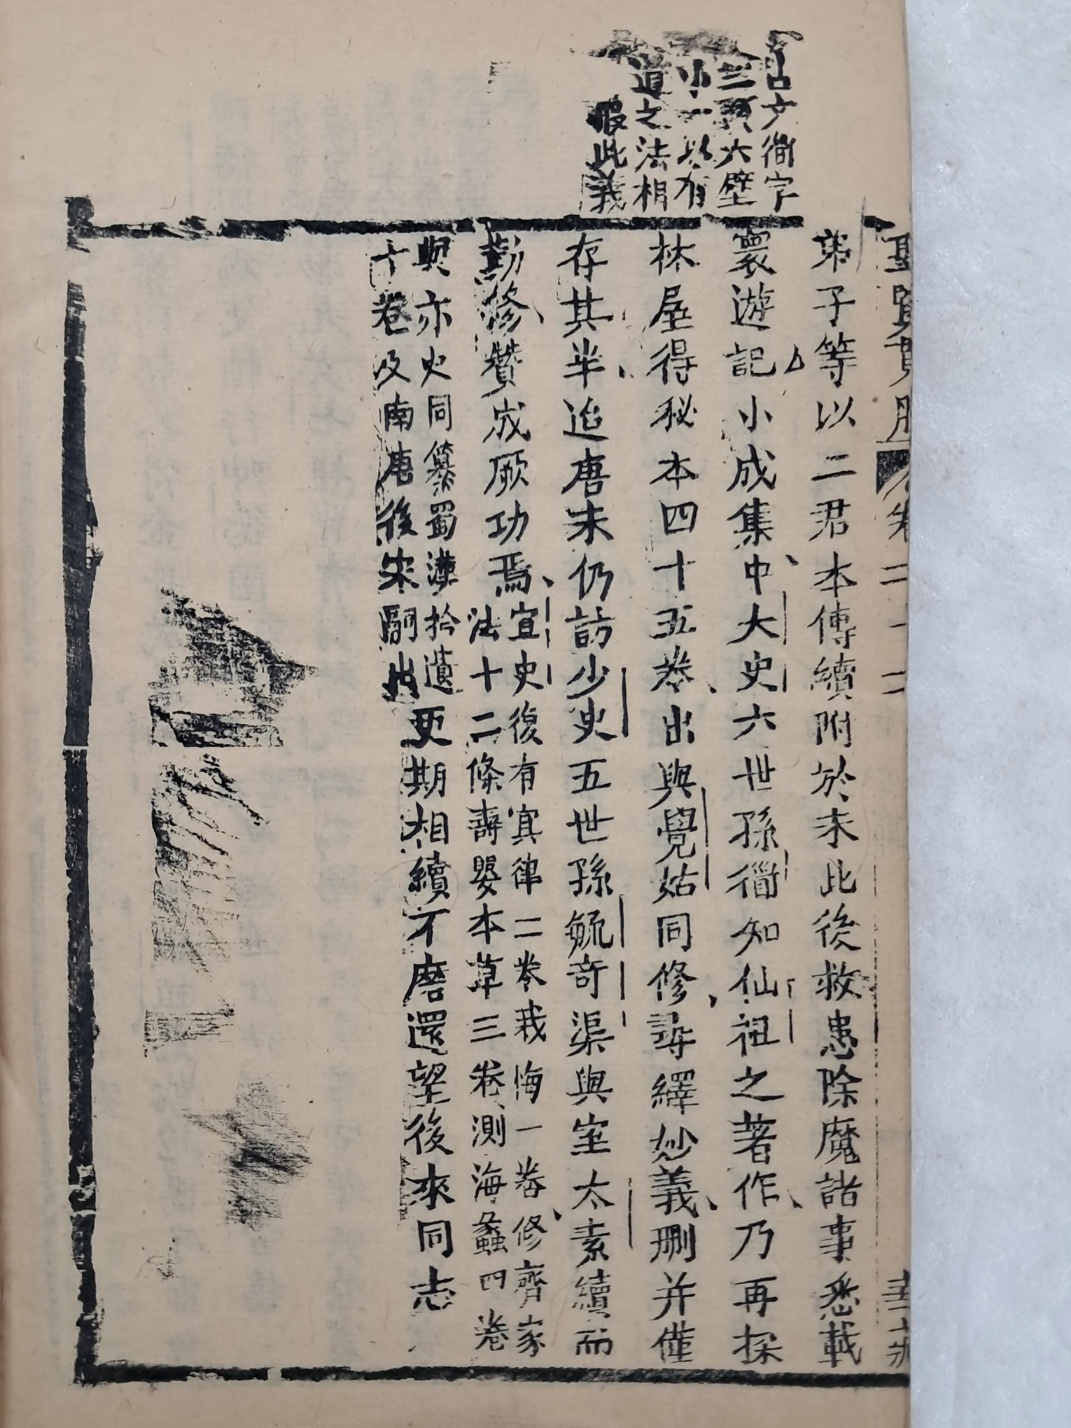 聖賢貫脈 卷二十二
弟子等以二君本傳續附於末此後救患除魔諸事悉載
寰遊記小成集中大史六世孫衟知仙祖之著作乃再探
林屋得秘本四十五卷出與覺姑同修尋繹妙義刪并僅
存其半迨唐末仍訪少史五世孫毓奇渠與室太素續而
勤修贊成厥功焉
宜史復有寘律二卷栽悔一卷修齊家
法十二條壽嬰本草三卷測海蠡四卷
與亦史同纂蜀漢拾遺
十卷及南唐後宋嗣出
更期相續不磨還望後來同志
古文衟字
三頭六壁
小一以有
道之法相
服此義